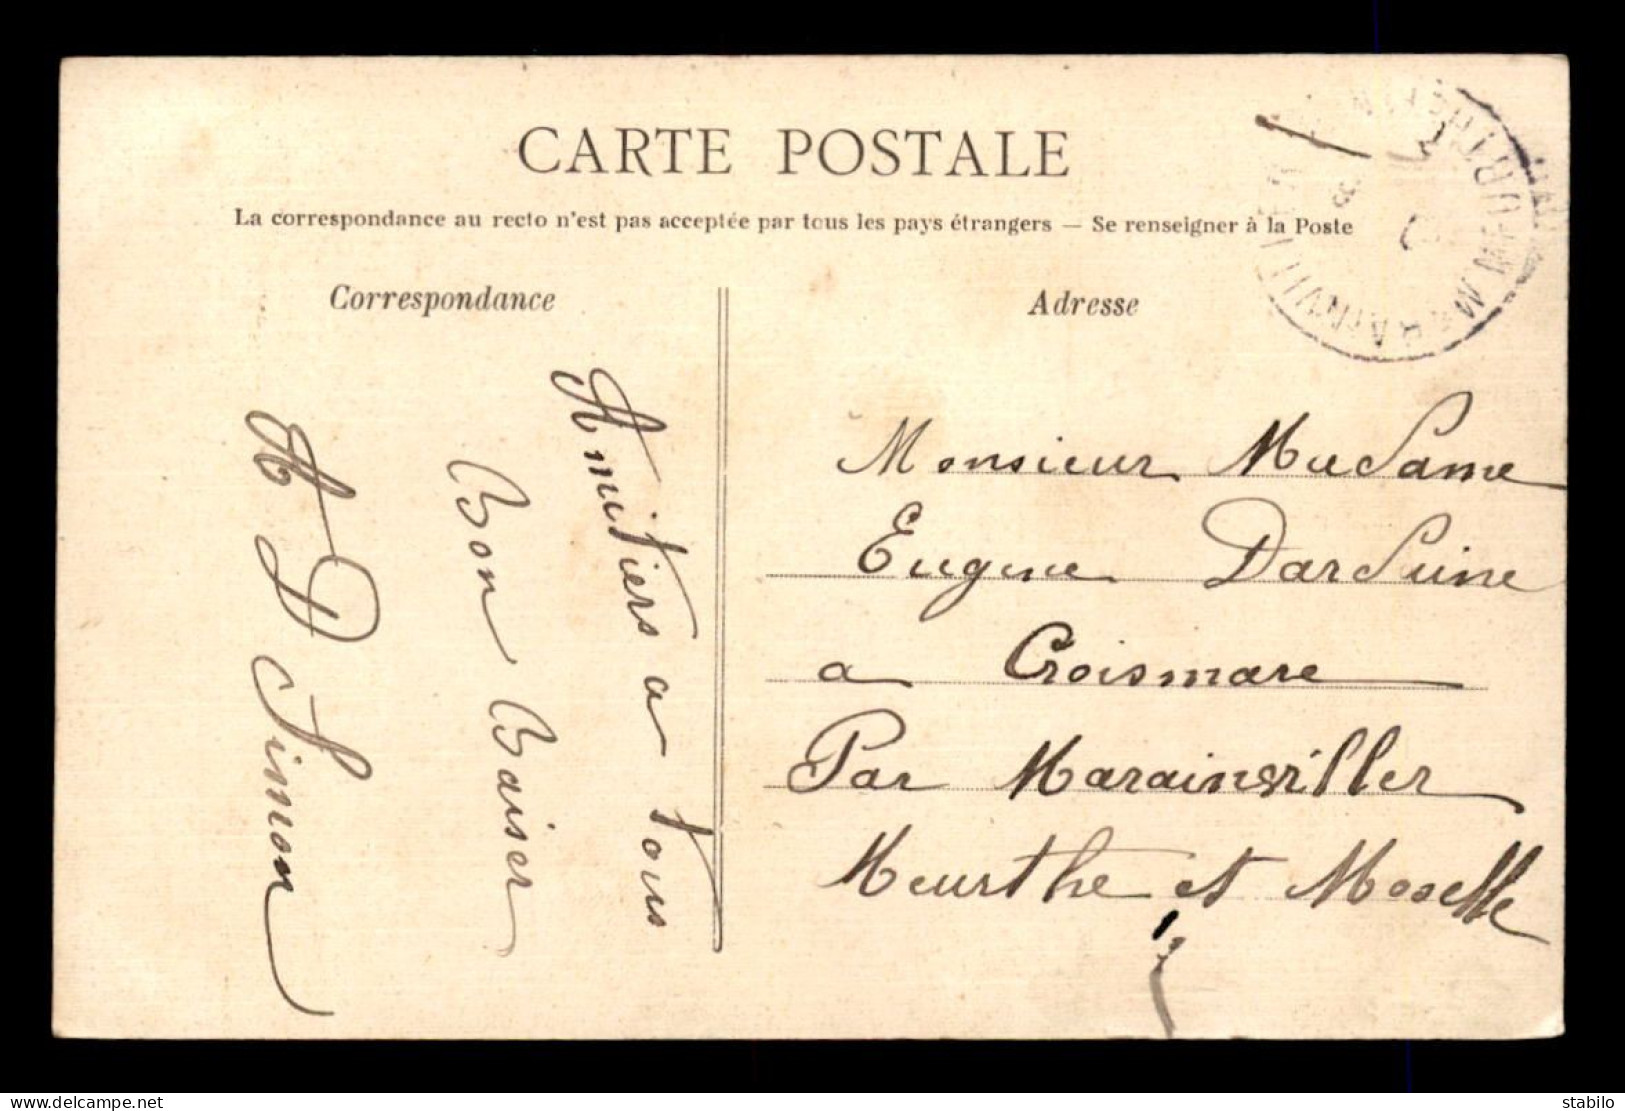 CARTE POSTALE
La correspondance au recto n'est pas acceptée par tous les pays étrangers — Se renseigner à la Poste
Correspondance
Amitiers a tous
Bon Baiser
H D Simon
Adresse
Monsieur Madame
Eugene Dardeine
a Croismare
Par Marainviller
Meurthe et Moselle
MARAINVILLER
MEURTHE
delcampe.net
stabilo